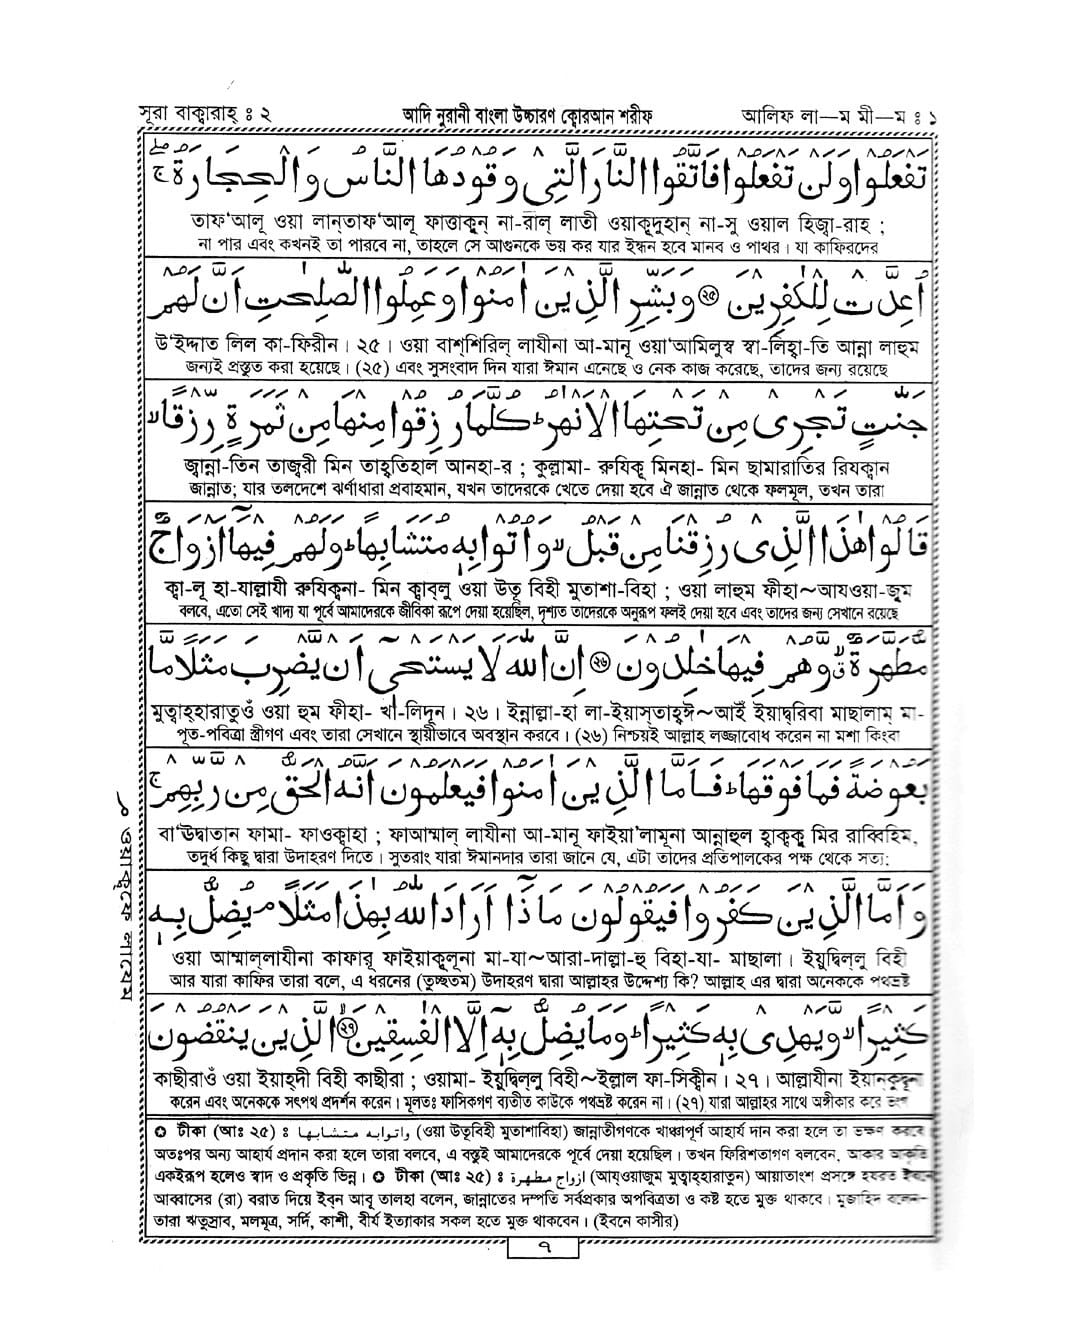 সূরা বাক্বারাহ্ ঃ ২
আদি নুরানী বাংলা উচ্চারণ ক্বোরআন শরীফ
আলিফ লা—ম মী—ম ঃ ১
تَفْعَلُوْا وَلَنْ تَفْعَلُوْا فَاتَّقُوا النَّارَ الَّتِيْ وَقُوْدُهَا النَّاسُ وَالْحِجَارَةُ ۚۖ
তাফ‘আলূ ওয়া লান্‌তাফ‘আলূ ফাত্তাকুন্ না-রাল্ লাতী ওয়াকূদুহান্ না-সু ওয়াল হিজ্বা-রাহ ;
না পার এবং কখনই তা পারবে না, তাহলে সে আগুনকে ভয় কর যার ইন্ধন হবে মানব ও পাথর। যা কাফিরদের
اُعِدَّتْ لِلْكٰفِرِيْنَ ۝٢٥ وَبَشِّرِ الَّذِيْنَ اٰمَنُوْا وَعَمِلُوا الصّٰلِحٰتِ اَنَّ لَهُمْ
উ‘ইদ্দাত লিল কা-ফিরীন। ২৫। ওয়া বাশ্‌শিরিল্ লাযীনা আ-মানূ ওয়া‘আমিলুস্ব স্বা-লিহ্বা-তি আন্না লাহুম
জন্যই প্রস্তুত করা হয়েছে। (২৫) এবং সুসংবাদ দিন যারা ঈমান এনেছে ও নেক কাজ করেছে, তাদের জন্য রয়েছে
جَنّٰتٍ تَجْرِيْ مِنْ تَحْتِهَا الْاَنْهٰرُ ؕ كُلَّمَا رُزِقُوْا مِنْهَا مِنْ ثَمَرَةٍ رِّزْقًا ۙ
জ্বান্না-তিন তাজ্বরী মিন তাহ্বতিহাল আনহা-র ; কুল্লামা- রুযিকূ মিনহা- মিন ছামারাতির রিযক্বান
জান্নাত; যার তলদেশে ঝর্ণাধারা প্রবাহমান, যখন তাদেরকে খেতে দেয়া হবে ঐ জান্নাত থেকে ফলমূল, তখন তারা
قَالُوْا هٰذَا الَّذِيْ رُزِقْنَا مِنْ قَبْلُ ۙ وَاُتُوْا بِهٖ مُتَشَابِهًا ؕ وَلَهُمْ فِيْهَاۤ اَزْوَاجٌ
ক্বা-লূ হা-যাল্লাযী রুযিক্বনা- মিন ক্বাব্‌লু ওয়া উতূ বিহী মুতাশা-বিহা ; ওয়া লাহুম ফীহা~আযওয়া-জুম
বলবে, এতো সেই খাদ্য যা পূর্বে আমাদেরকে জীবিকা রূপে দেয়া হয়েছিল, দৃশ্যত তাদেরকে অনুরূপ ফলই দেয়া হবে এবং তাদের জন্য সেখানে রয়েছে
مُّطَهَّرَةٌ ۙ وَّهُمْ فِيْهَا خٰلِدُوْنَ ۝٢٦ اِنَّ اللّٰهَ لَا يَسْتَحْيٖۤ اَنْ يَّضْرِبَ مَثَلًا مَّا
মুত্বাহ্‌হারাতুওঁ ওয়া হুম ফীহা- খা-লিদূন। ২৬। ইন্নাল্লা-হা লা-ইয়াস্‌তাহ্বঈ~আইঁ ইয়াদ্বরিবা মাছালাম্ মা-
পূত-পবিত্রা স্ত্রীগণ এবং তারা সেখানে স্থায়ীভাবে অবস্থান করবে। (২৬) নিশ্চয়ই আল্লাহ লজ্জাবোধ করেন না মশা কিংবা
بَعُوْضَةً فَمَا فَوْقَهَا ؕ فَاَمَّا الَّذِيْنَ اٰمَنُوْا فَيَعْلَمُوْنَ اَنَّهُ الْحَقُّ مِنْ رَّبِّهِمْ ۚ
বা‘ঊদ্বাতান ফামা- ফাওক্বাহা ; ফাআম্মাল্ লাযীনা আ-মানূ ফাইয়া‘লামূনা আন্নাহুল হ্বাক্বকু মির রাব্বিহিম,
তদুর্ধ কিছু দ্বারা উদাহরণ দিতে। সুতরাং যারা ঈমানদার তারা জানে যে, এটা তাদের প্রতিপালকের পক্ষ থেকে সত্য:
ওয়াক্বফে লাযেম
وَاَمَّا الَّذِيْنَ كَفَرُوْا فَيَقُوْلُوْنَ مَاذَاۤ اَرَادَ اللّٰهُ بِهٰذَا مَثَلًا ۘ يُضِلُّ بِهٖ
ওয়া আম্মাল্‌লাযীনা কাফারূ ফাইয়াকূলূনা মা-যা~আরা-দাল্লা-হু বিহা-যা- মাছালা। ইয়ুদ্বিল্‌লু বিহী
আর যারা কাফির তারা বলে, এ ধরনের (তুচ্ছতম) উদাহরণ দ্বারা আল্লাহর উদ্দেশ্য কি? আল্লাহ এর দ্বারা অনেককে পথভ্রষ্ট
كَثِيْرًا ۙ وَّيَهْدِيْ بِهٖ كَثِيْرًا ؕ وَمَا يُضِلُّ بِهٖۤ اِلَّا الْفٰسِقِيْنَ ۝٢٧ الَّذِيْنَ يَنْقُضُوْنَ
কাছীরাওঁ ওয়া ইয়াহ্‌দী বিহী কাছীরা ; ওয়ামা- ইয়ুদ্বিল্‌লু বিহী~ইল্লাল ফা-সিক্বীন। ২৭। আল্লাযীনা ইয়ান্‌কুদ্বূনা
করেন এবং অনেককে সৎপথ প্রদর্শন করেন। মূলতঃ ফাসিকগণ ব্যতীত কাউকে পথভ্রষ্ট করেন না। (২৭) যারা আল্লাহর সাথে অঙ্গীকার করে ভংগ
✪ টীকা (আঃ ২৫) ঃ واتوابه متشابها (ওয়া উতূবিহী মুতাশাবিহা) জান্নাতীগণকে খাঞ্চাপূর্ণ আহার্য দান করা হলে তা ভক্ষণ করবে
অতঃপর অন্য আহার্য প্রদান করা হলে তারা বলবে, এ বস্তুই আমাদেরকে পূর্বে দেয়া হয়েছিল। তখন ফিরিশতাগণ বলবেন, আকার আকৃতি
একইরূপ হলেও স্বাদ ও প্রকৃতি ভিন্ন। ✪ টীকা (আঃ ২৫) ঃ ازواج مطهرة (আয্‌ওয়াজুম মুত্বাহ্‌হারাতুন) আয়াতাংশ প্রসঙ্গে হযরত ইবনে
আব্বাসের (রা) বরাত দিয়ে ইব্‌ন আবূ তালহা বলেন, জান্নাতের দম্পতি সর্বপ্রকার অপবিত্রতা ও কষ্ট হতে মুক্ত থাকবে। মুজাহিদ বলেন-
তারা ঋতুস্রাব, মলমূত্র, সর্দি, কাশী, বীর্য ইত্যাকার সকল হতে মুক্ত থাকবেন। (ইবনে কাসীর)
৭